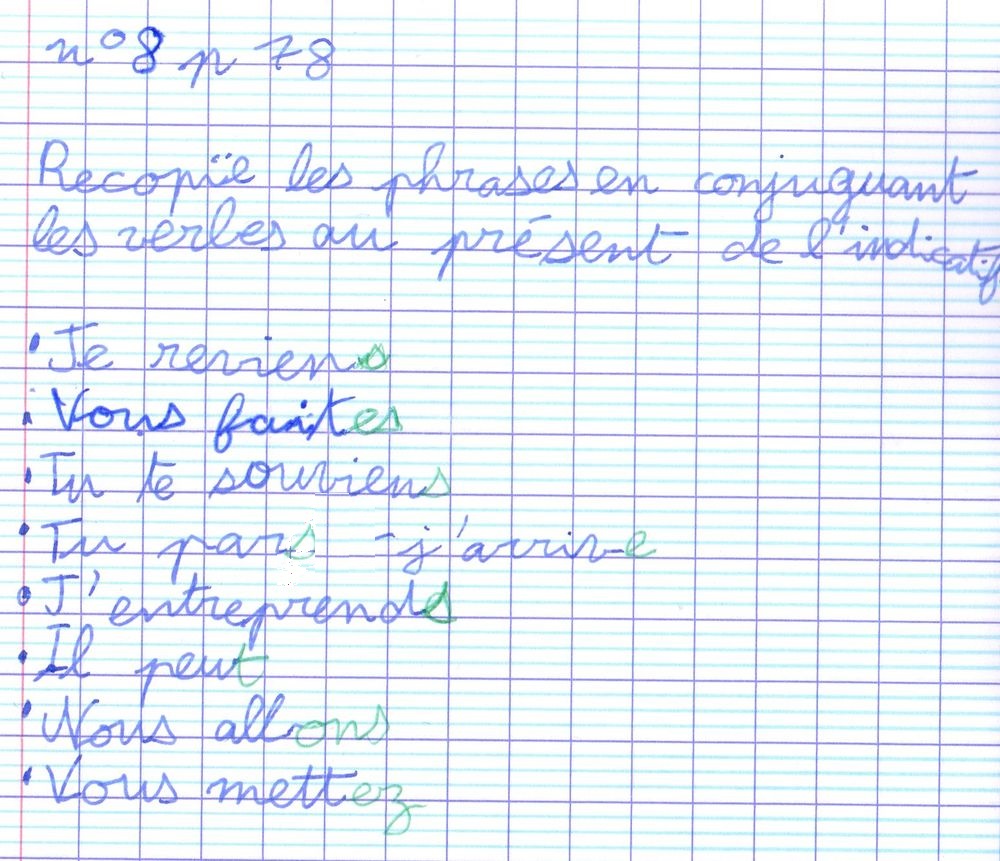 n°8 p 78
Recopïe les phrases en conjuguant
les verbes au présent de l'indicatif
• Je reviens
• Vous faites
• Tu te souviens
• Tu pars - j'arrive
• J'entreprends
• Il peut
• Nous allons
• Vous mettez